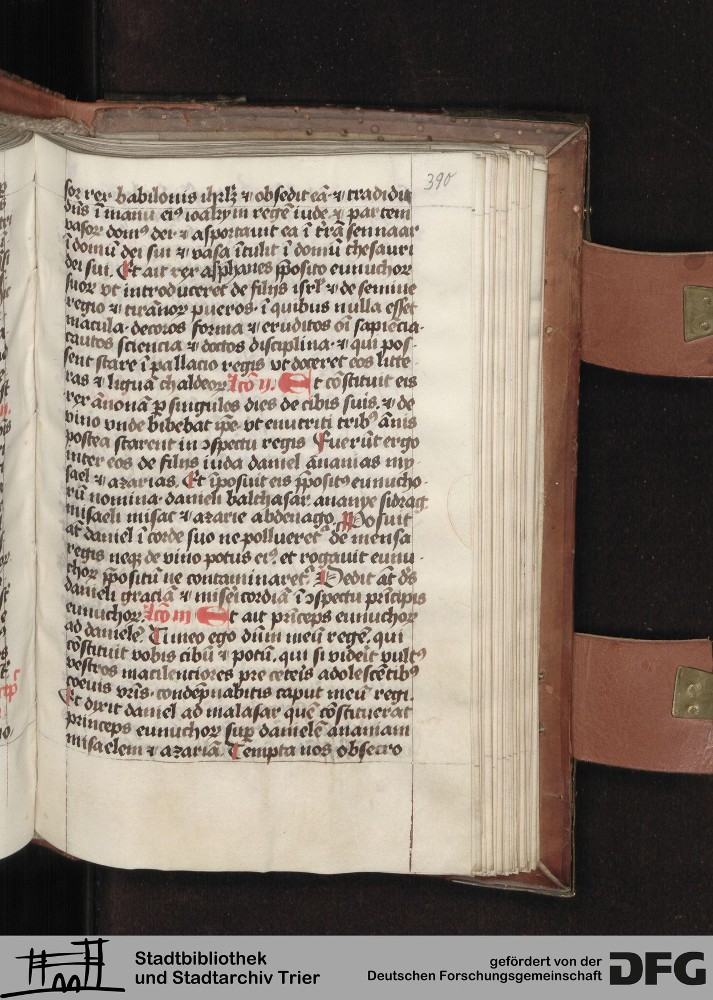 390
sor rex babilonis ihrlꝫ ⁊ obsedit eā ⁊ tradidit
dñs ī manu eiꝰ ioakym regē iude ⁊ partem
vasoꝝ domꝰ dei ⁊ asportavit ea ī t̃rā sennaar
ī domū dei sui ⁊ vasa ītulit ī domū thesauri
dei sui. Et ait rex asphanes p̄posito eunuchoꝝ
suoꝝ vt introduceret de filijs isrl̄ ⁊ de semine
regio ⁊ tirānoꝝ pueros · ī quibus nulla esset
macula · decoros forma ⁊ eruditos oī sapiēcia ·
cautos sciencia ⁊ doctos disciplina · ⁊ qui pos-
sent stare ī pallacio regis vt doceret eos litte-
ras ⁊ liguā chaldeoꝝ lcō ıı. Et cōstituit eis
rex ānonā p singulos dies de cibis suis · ⁊ de
vino vnde bibebat ip̄e · vt enutriti tribꝰ ānis
postea starent in ꝯspectu regis Fuerūt ergo
inter eos de filijs iuda daniel ananias my-
sael ⁊ azarias. Et īposuit eis p̄positꝰ eunucho-
rū nomina · danieli balthasar ananye sidrag
misaeli misac ⁊ azarie abdenago. Posuit
aūt daniel ī corde suo ne pollueret᷑ de mensa
regis neqꝫ de vino potus eiꝰ. et rogavit eunu-
choꝝ p̄positū ne contaminaret᷑. Dedit aūt ds̄
danieli graciā ⁊ misericordiā ī ꝯspectu prīcipis
eunuchoꝝ lcō ııı Et ait prīceps eunuchoꝝ
ad danielē Timeo ego dn̄m meū regē, qui
cōstituit vobis cibū ⁊ potū, qui si viderit vultꝰ
vestros macilenciores pre ceteris adolescētibꝰ
coevis vr̄is · condēpnabitis caput meū regi.
Et dixit daniel ad malasar quē cōstituerat
princeps eunuchoꝝ suꝑ danielē ananiam
misaelem ⁊ azariā. Tempta nos obsecro
Stadtbibliothek
und Stadtarchiv Trier
gefördert von der
Deutschen Forschungsgemeinschaft
DFG